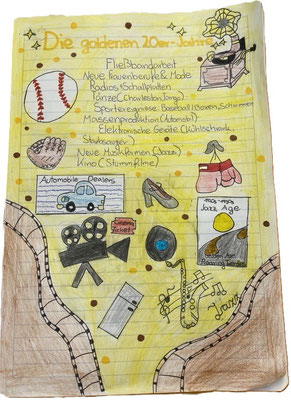 Die goldenen 20er-Jahre
Fließbandarbeit
Neue Frauenberufe & Mode
Radios & Schallplatten
Tänze (Charleston, Tango)
Sportereignisse: Baseball, Boxen, Schwimmen
Massenproduktion (Automobil)
Elektronische Geräte (Kühlschrank,
Staubsauger)
Neue Musikformen (Jazz)
Kino (Stummfilme)
Automobile Dealers
Jazz Age
Cinema
Ticket
Roaring
Jazz